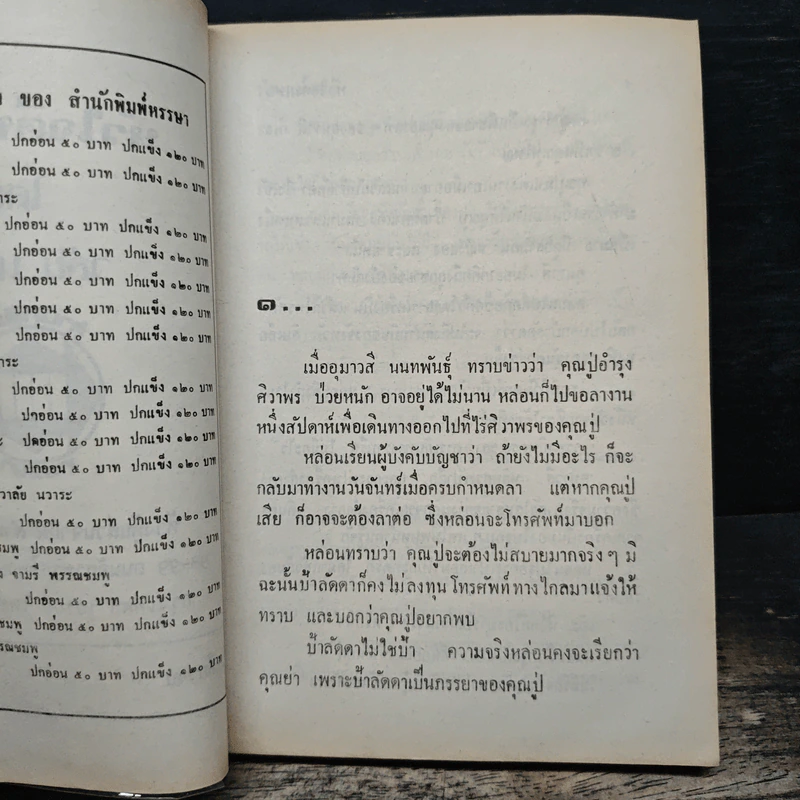 ของ สำนักพิมพ์หรรษา
ปกอ่อน ๕๐ บาท ปกแข็ง ๑๒๐ บาท
ปกอ่อน ๕๐ บาท ปกแข็ง ๑๒๐ บาท
าระ
ปกอ่อน ๕๐ บาท ปกแข็ง ๑๒๐ บาท
ปกอ่อน ๕๐ บาท ปกแข็ง ๑๒๐ บาท
ปกอ่อน ๕๐ บาท ปกแข็ง ๑๒๐ บาท
ปกอ่อน ๕๐ บาท ปกแข็ง ๑๒๐ บาท
ปกอ่อน ๕๐ บาท ปกแข็ง ๑๒๐ บาท
าระ
ปกอ่อน ๕๐ บาท ปกแข็ง ๑๒๐ บาท
ปกอ่อน ๕๐ บาท ปกแข็ง ๑๒๐ บาท
ปกอ่อน ๕๐ บาท ปกแข็ง ๑๒๐ บาท
ปกอ่อน ๕๐ บาท ปกแข็ง ๑๒๐ บาท
วาลัย นวาระ
ปกอ่อน ๕๐ บาท ปกแข็ง ๑๒๐ บาท
ชมพู ปกอ่อน ๕๐ บาท ปกแข็ง ๑๒๐ บาท
ง จามรี พรรณชมพู
ปกอ่อน ๕๐ บาท ปกแข็ง ๑๒๐ บาท
ชมพู ปกอ่อน ๕๐ บาท ปกแข็ง ๑๒๐ บาท
รณชมพู
ปกอ่อน ๕๐ บาท ปกแข็ง ๑๒๐ บาท
๑...
เมื่ออุมาวสี นนทพันธุ์ ทราบข่าวว่า คุณปู่อำรุง
ศิวาพร ป่วยหนัก อาจอยู่ได้ไม่นาน หล่อนก็ไปขอลางาน
หนึ่งสัปดาห์เพื่อเดินทางออกไปที่ไร่ศิวาพรของคุณปู่
หล่อนเรียนผู้บังคับบัญชาว่า ถ้ายังไม่มีอะไร ก็จะ
กลับมาทำงานวันจันทร์เมื่อครบกำหนดลา แต่หากคุณปู่
เสีย ก็อาจจะต้องลาต่อ ซึ่งหล่อนจะโทรศัพท์มาบอก
หล่อนทราบว่า คุณปู่จะต้องไม่สบายมากจริง ๆ มิ
ฉะนั้นป้าลัดดาก็คงไม่ลงทุนโทรศัพท์ทางไกลมาแจ้งให้
ทราบ และบอกว่าคุณปู่อยากพบ
ป้าลัดดาไม่ใช่ป้า ความจริงหล่อนคงจะเรียกว่า
คุณย่า เพราะป้าลัดดาเป็นภรรยาของคุณปู่